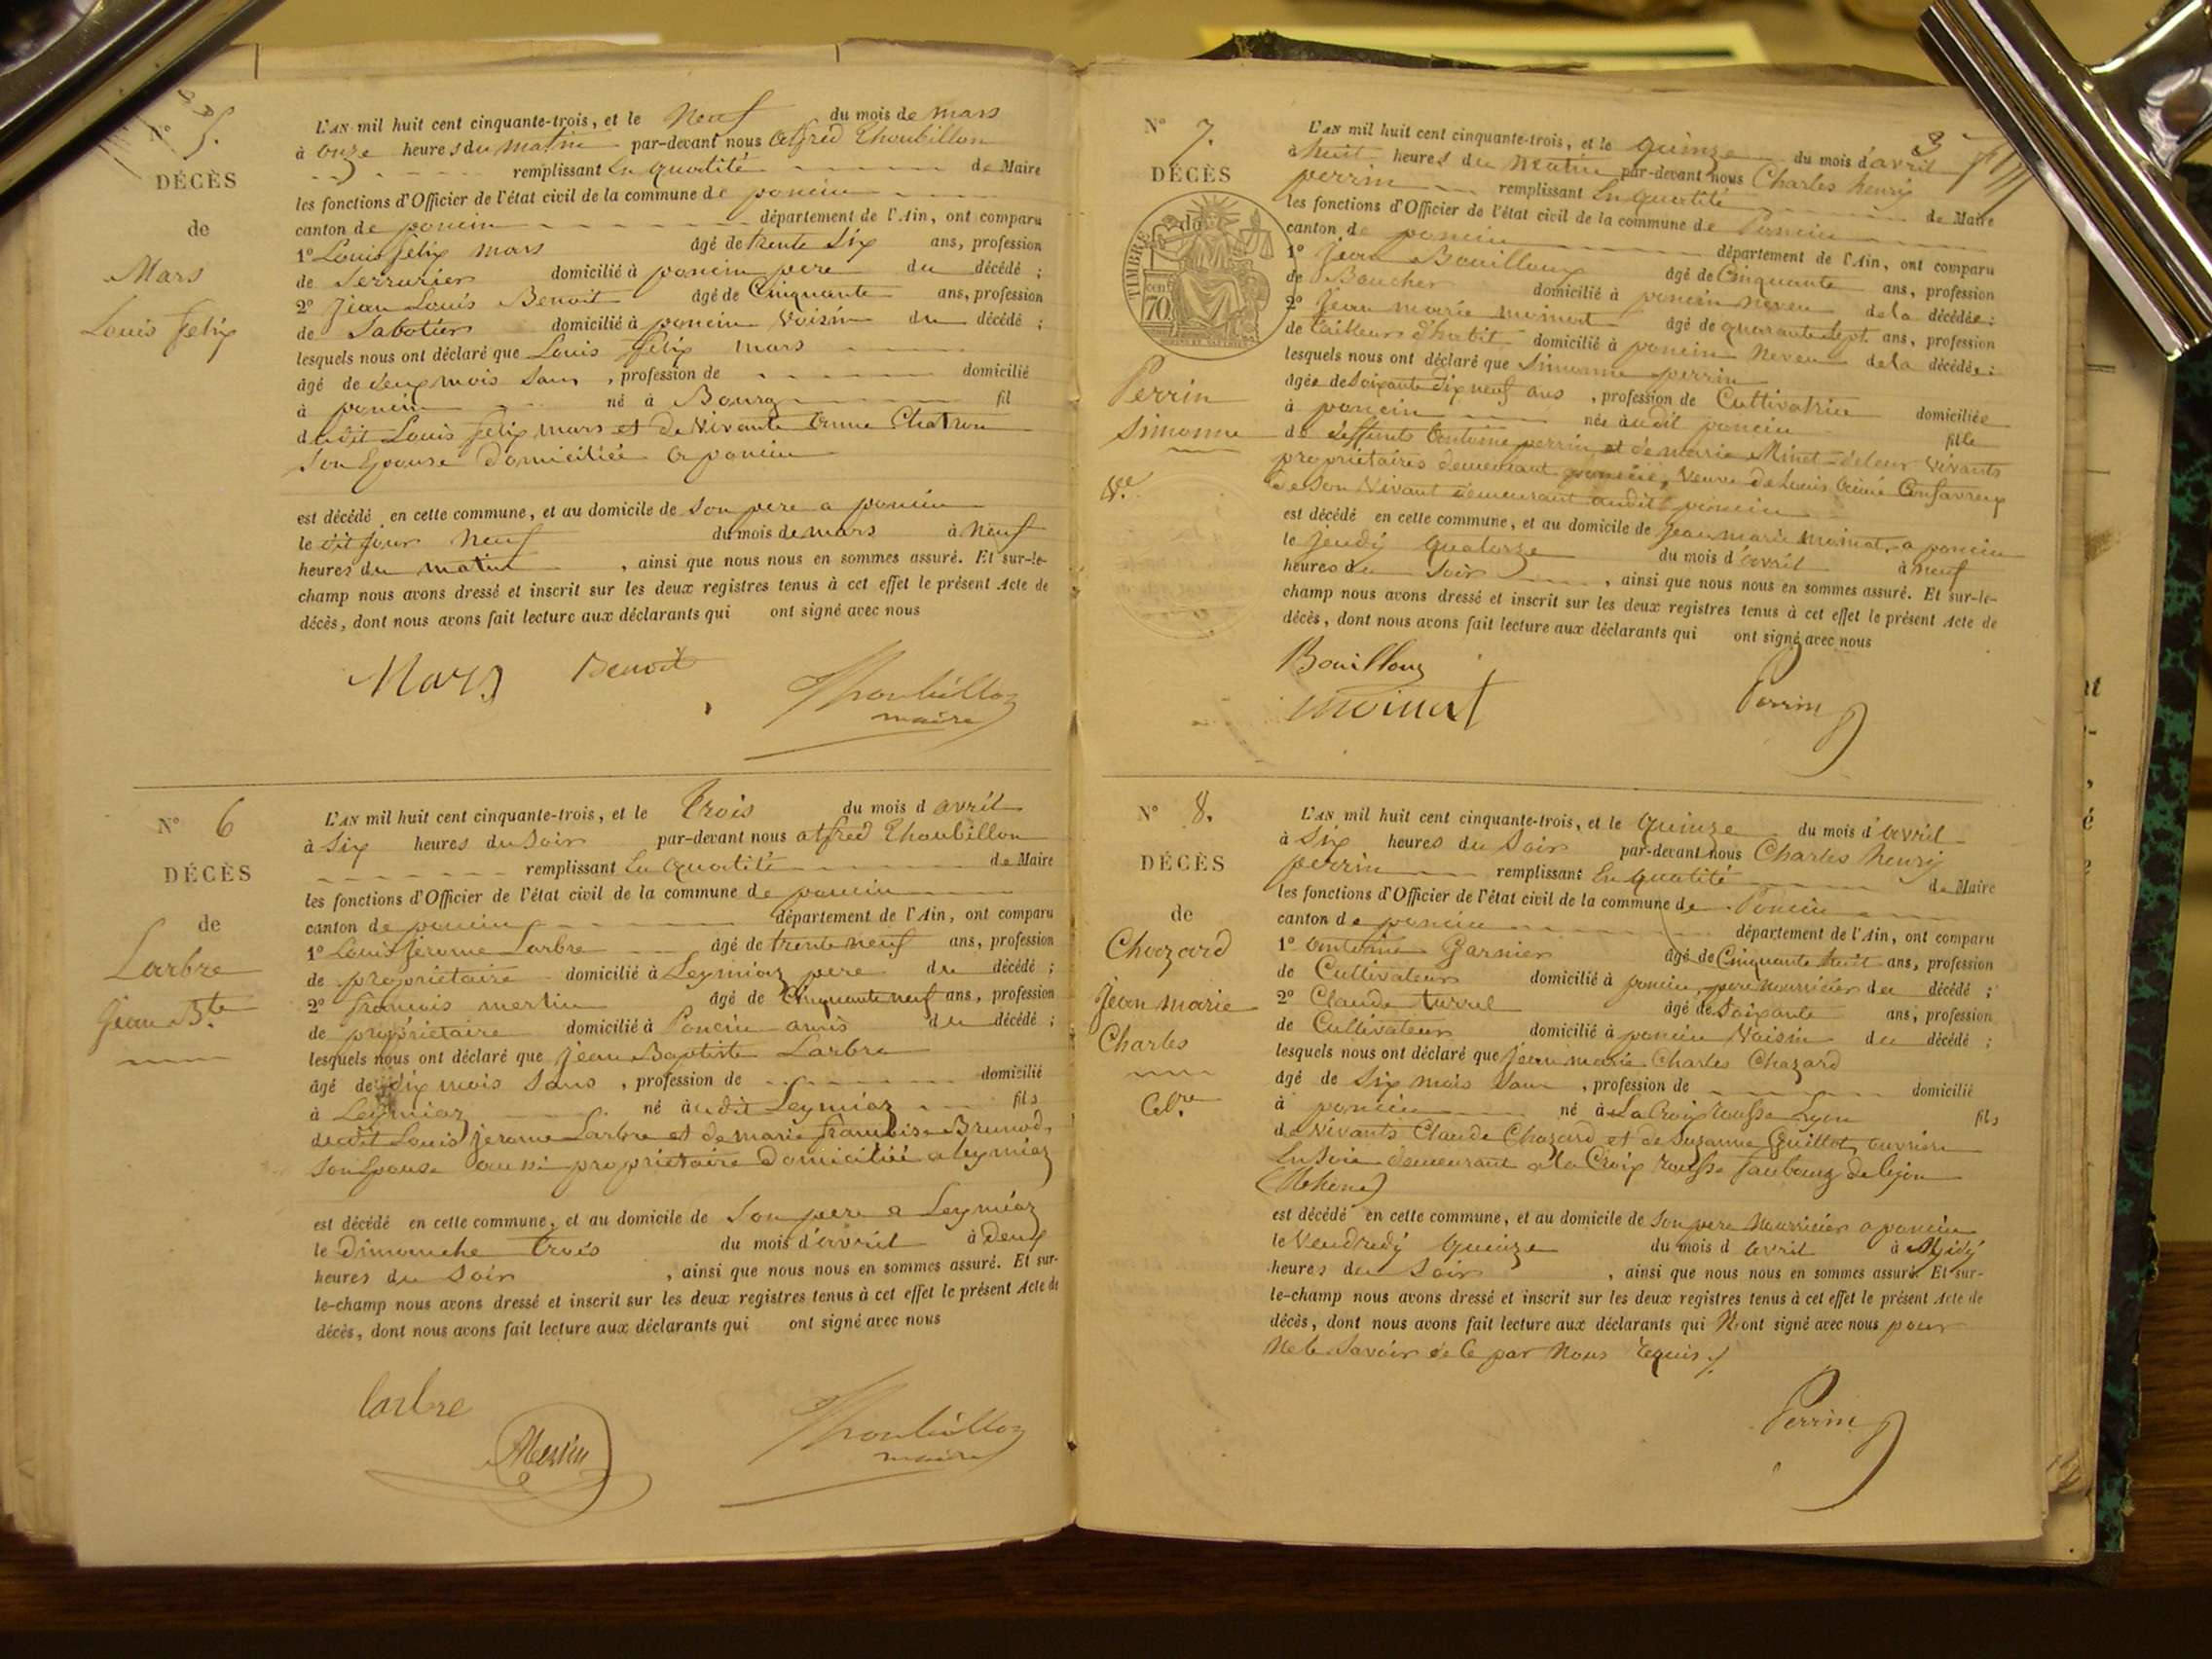 N° 5.
DÉCÈS
de
Mars
Louis felix
L'AN mil huit cent cinquante-trois, et le Neuf du mois de mars
à onze heures du matin par-devant nous alfred Thoubillon
remplissant En quatité de Maire
les fonctions d'Officier de l'état civil de la commune de poncin
canton de poncin département de l'Ain, ont comparu
1° Louis felix mars âgé de trente Six ans, profession
de Serrurier domicilié à poncin pere du décédé ;
2° jean Louis Benoit âgé de Cinquante ans, profession
de Sabotier domicilié à poncin Voisin du décédé ;
lesquels nous ont déclaré que Louis felix mars
âgé de deux mois sans , profession de domicilié
à poncin né à Bourg fil
dudit Louis felix mars et de Vivante Chatron
Son Epouse domiciliée a poncin
est décédé en cette commune, et au domicile de Son pere a poncin
le dit jour Neuf du mois de mars à Neuf
heures du matin , ainsi que nous nous en sommes assuré. Et sur-le-
champ nous avons dressé et inscrit sur les deux registres tenus à cet effet le présent Acte de
décès, dont nous avons fait lecture aux déclarants qui ont signé avec nous
Mars Benoit Thoubillon
maire
N° 6
DÉCÈS
de
Larbre
jean Bte
L'AN mil huit cent cinquante-trois, et le trois du mois d avril
à Six heures du Soir par-devant nous alfred Thoubillon
remplissant En quatité de Maire
les fonctions d'Officier de l'état civil de la commune de poncin
canton de poncin département de l'Ain, ont comparu
1° Louis jerome Larbre âgé de trente neuf ans, profession
de propriétaire domicilié à Leymiaz pere du décédé ;
2° francois mertin âgé de Cinquante neuf ans, profession
de propriétaire domicilié à Poncin amis du décédé ;
lesquels nous ont déclaré que jean Baptiste Larbre
âgé de dix mois Sans , profession de domicilié
à Leymiaz né à udit Leymiaz fils
dudit Louis jerome Larbre et de marie francoise Brunod,
Son Epouse aussi propriétaire domiciliée a leymiaz
est décédé en cette commune, et au domicile de Son pere a Leymiaz
le Dimanche trois du mois d'avril à deux
heures du Soir , ainsi que nous nous en sommes assuré. Et sur-
le-champ nous avons dressé et inscrit sur les deux registres tenus à cet effet le présent Acte de
décès, dont nous avons fait lecture aux déclarants qui ont signé avec nous
larbre Thoubillon
Mertin maire
N° 7.
DÉCÈS
de
TIMBRE
70
Perrin
Simonne
Ve.
3
L'AN mil huit cent cinquante-trois, et le quinze du mois d'avril
à huit heures du Matin par-devant nous Charles henry
perrin remplissant En quatité de Maire
les fonctions d'Officier de l'état civil de la commune de Poncin
canton de poncin département de l'Ain, ont comparu
1° jean Bouilloux âgé de Cinquante ans, profession
de Boucher domicilié à poncin neveu dela décédée :
2° jean marie moinat âgé de quarante Sept ans, profession
de tailleur d'habit domicilié à poncin Neveu dela décédée :
lesquels nous ont déclaré que Simonne perrin
âgée de Soixante dix neuf ans , profession de Cultivatrice domiciliée
à poncin née à udit poncin fille
de deffunts Antoine perrin et de marie Minet deleur Vivants
propriétaires demeurant poncin, Veuve de Louis Confavreux
de Son Vivant demeurant audit poncin
est décédé en cette commune, et au domicile de jean marie moinat, a poncin
le jeudy quatorze du mois d'avril à neuf
heures du Soir , ainsi que nous nous en sommes assuré. Et sur-le-
champ nous avons dressé et inscrit sur les deux registres tenus à cet effet le présent Acte de
décès, dont nous avons fait lecture aux déclarants qui ont signé avec nous
Bouilloux
moinat Perrin
N° 8.
DÉCÈS
de
Chazard
jean marie
Charles
Cel.re
L'AN mil huit cent cinquante-trois, et le quinze du mois d'avril
à Six heures du Soir par-devant nous Charles henry
perrin remplissant En quatité de Maire
les fonctions d'Officier de l'état civil de la commune de Poncin
canton de poncin département de l'Ain, ont comparu
1° antoine Garnier âgé de Cinquante huit ans, profession
de Cultivateur domicilié à poncin pere nourricier du décédé ;
2° Claude turrel âgé de Soixante ans, profession
de Cultivateur domicilié à poncin Voisin du décédé ;
lesquels nous ont déclaré que jean marie Charles Chazard
âgé de Six mois Sans , profession de domicilié
à poncin né à La Croix rousse Lyon fils
de Vivants Claude Chazard et de Suzanne Guillot, ouvriers
En Soie demeurant a la Croix rousse faubourg de lyon
(Rhône)
est décédé en cette commune, et au domicile de Son pere Nourricier a poncin
le Vendredy quinze du mois d avril à Midy
heures du Soir , ainsi que nous nous en sommes assuré. Et sur-
le-champ nous avons dressé et inscrit sur les deux registres tenus à cet effet le présent Acte de
décès, dont nous avons fait lecture aux déclarants qui N'ont signé avec nous pour
Ne le Savoir de Ce par Nous Requis ./.
Perrin